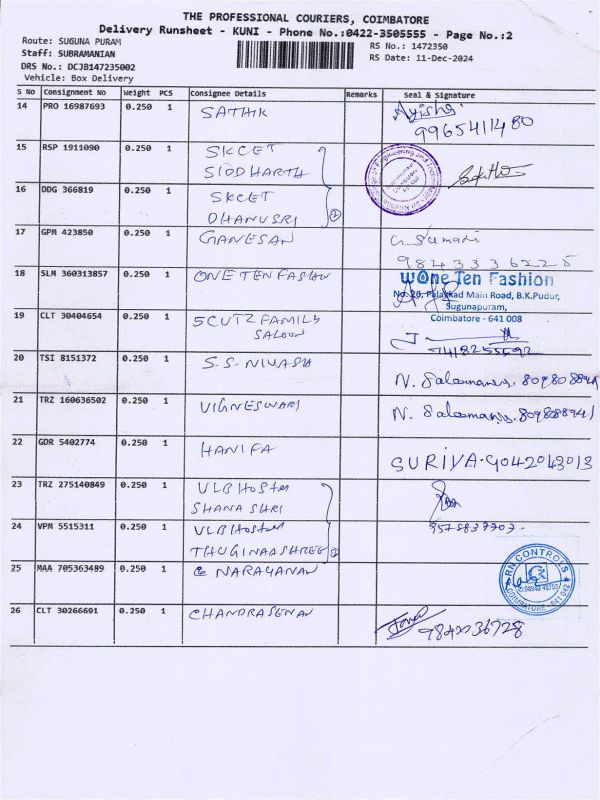 THE PROFESSIONAL COURIERS, COIMBATORE
Delivery Runsheet - KUNI - Phone No.:0422-3505555 - Page No.:2
Route: SUGUNA PURAM
RS No.: 1472350
Staff: SUBRAMANIAN
RS Date: 11-Dec-2024
DRS No.: DCJB147235002
Vehicle: Box Delivery
S No Consignment No Weight PCS Consignee Details Remarks Seal & Signature
14 PRO 16987693 0.250 1 SATHIK Ayisha
9965411480
15 RSP 1911090 0.250 1 SKCET
SIDDHARTH
16 DDG 366819 0.250 1 SKCET
DHANUSRI
17 GPM 423850 0.250 1 GANESAN G. Sumani
18 SLM 360313857 0.250 1 ONE TEN FASIAN
WOne Ten Fashion
No: 26, Palakkad Main Road, B.K.Pudur,
Sugunapuram,
Coimbatore - 641 008
19 CLT 30404654 0.250 1 SCUTZ FAMILY
SALOON
7418255592
20 TSI 8151372 0.250 1 S.S. NIVASH
21 TRZ 160636502 0.250 1 VIGNESWARI
22 GDR 5402774 0.250 1 HANIFA SURIYA. 9042043013
23 TRZ 275140849 0.250 1 VLB Hostel
SHANA SHRI
24 VPM 5515311 0.250 1 VLB Hostel
THUGINAASHREE
25 MAA 705363489 0.250 1 NARAYANAN
RN CONTROLS
COIMBATORE - 641 042
26 CLT 30266691 0.250 1 CHANDRASENAN